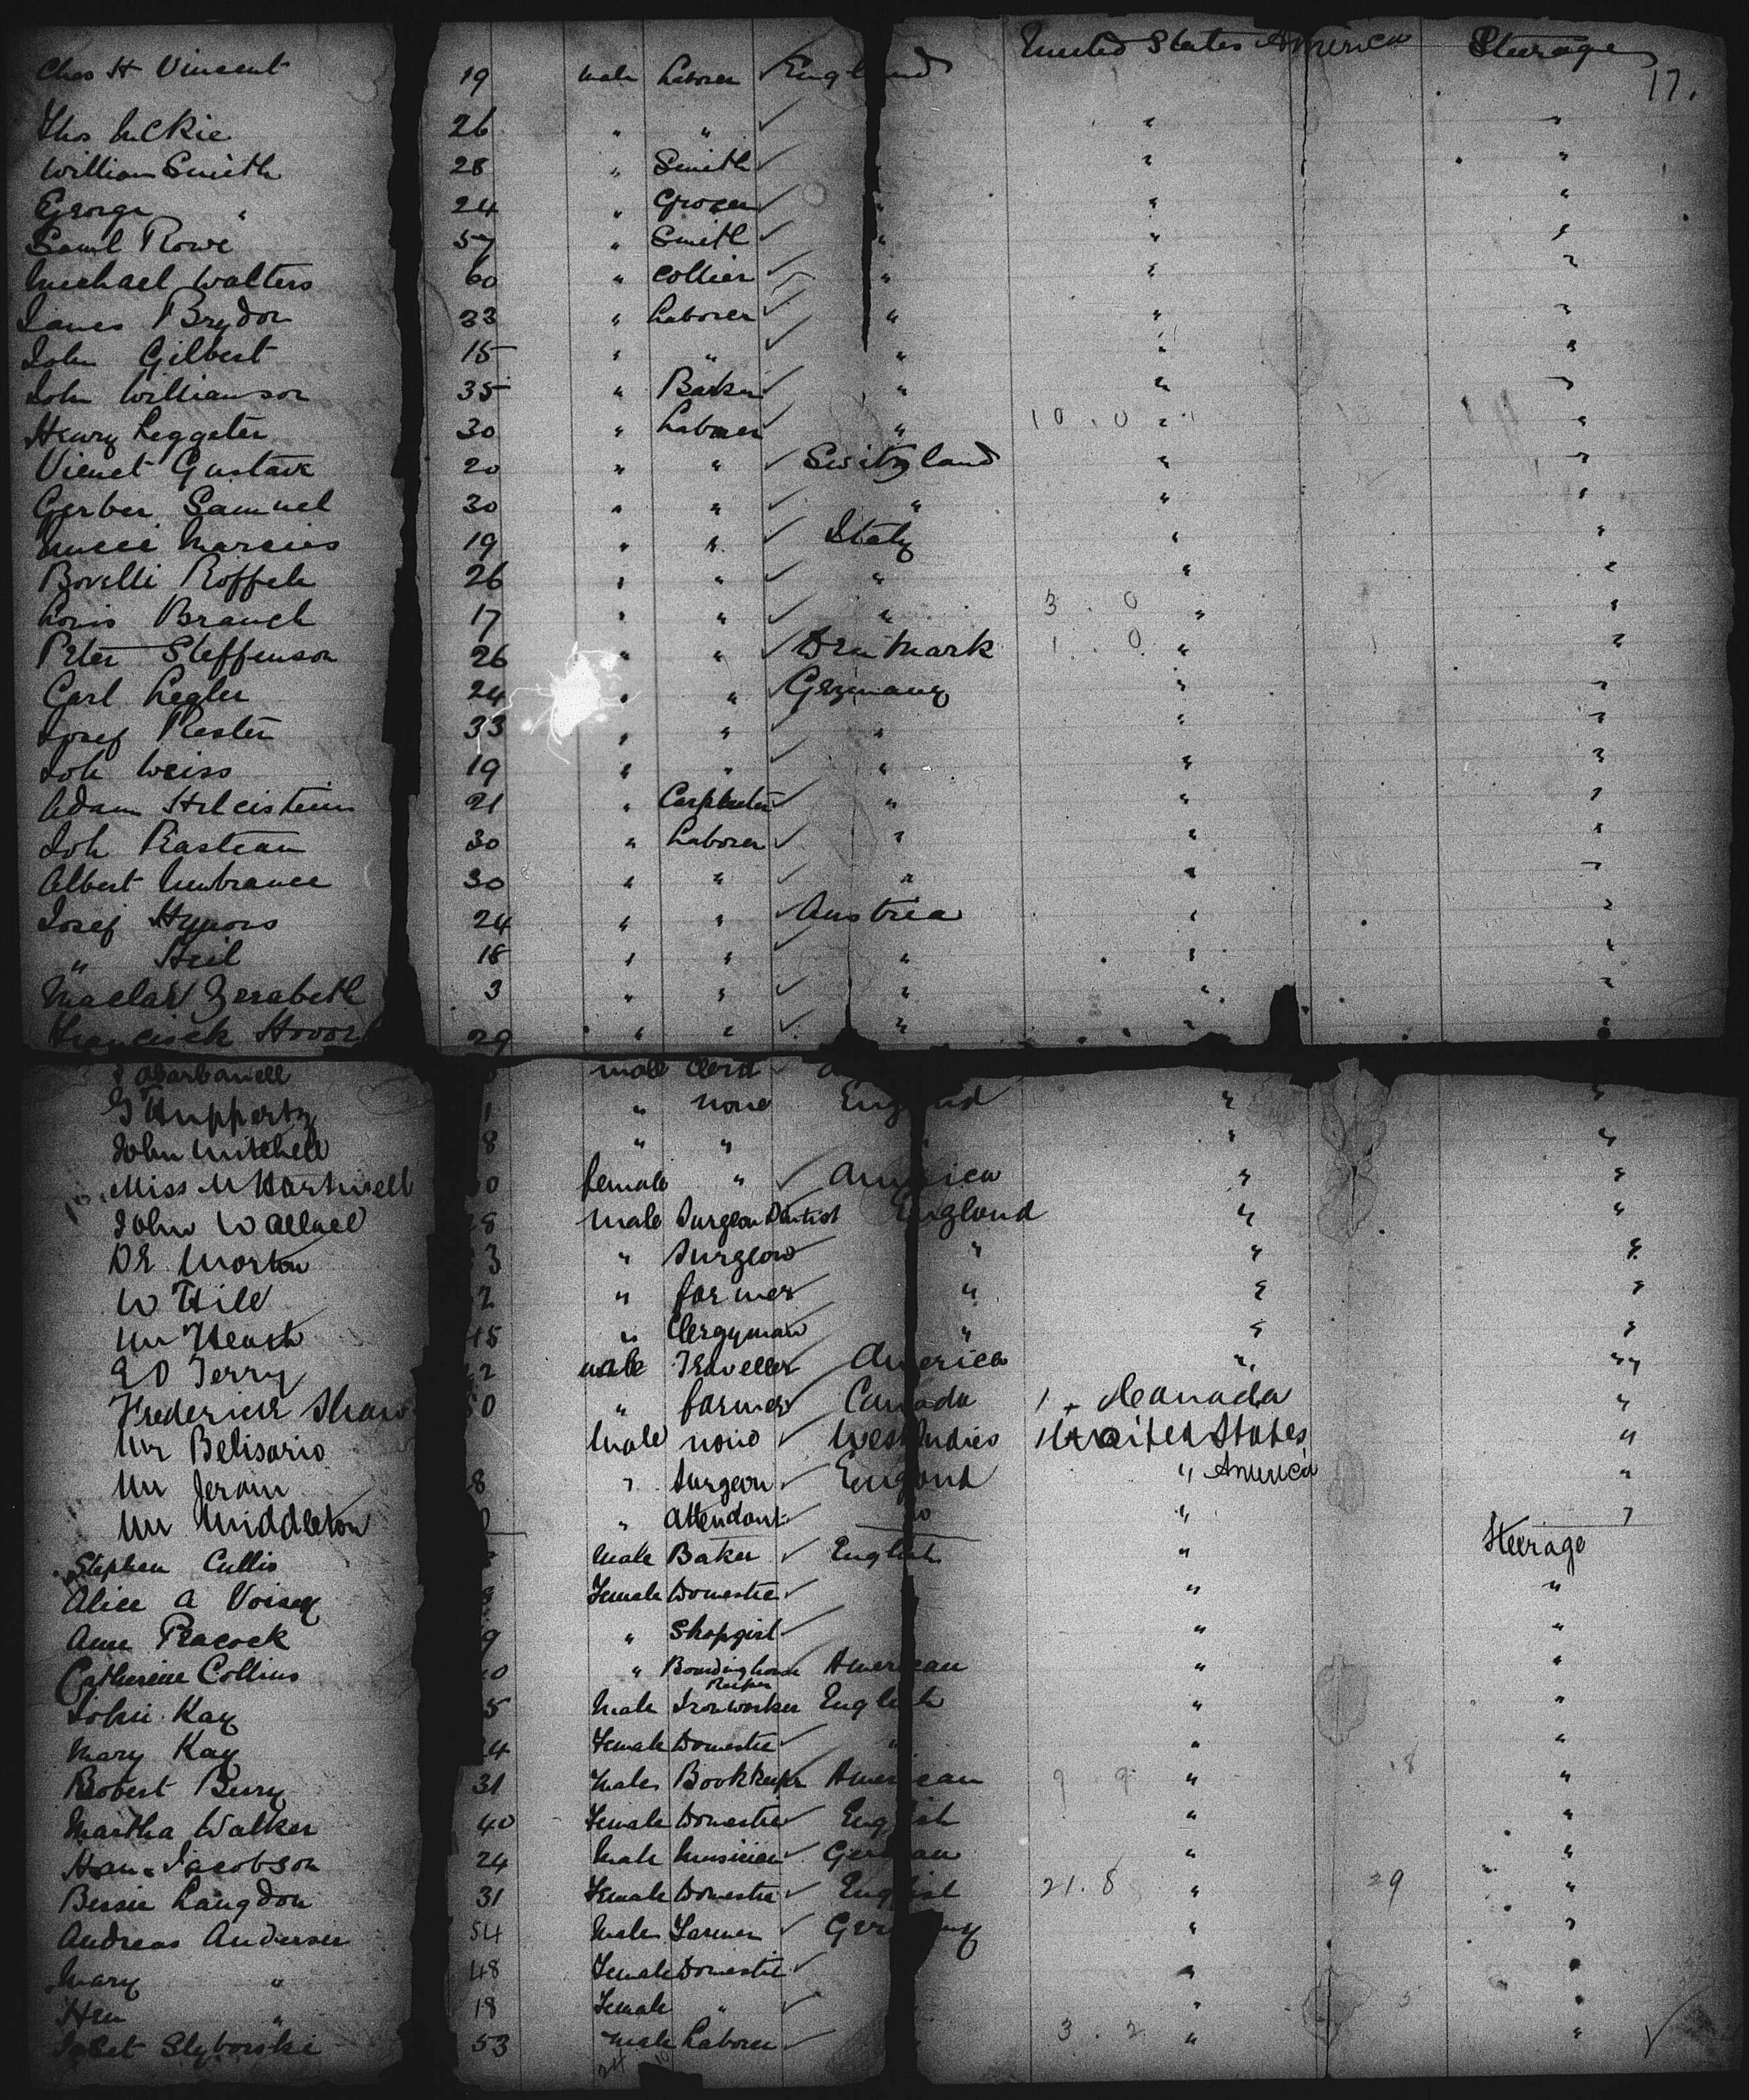 Chas H Vincent 19 male Laborer ✓ England United States America Steerage
17.
Thos McKie 26 " " ✓ " "
William Smith 28 " Smith ✓ " " "
George " 24 " Grocer ✓ " " "
Saml Rowe 57 " Smith ✓ " " "
Michael Walters 60 " Collier ✓ " " "
James Brydon 33 " Laborer ✓ " " "
John Gilbert 15 " " ✓ " " "
John Williamson 35 " Baker ✓ " " "
Henry Leggeter 30 " Laborer ✓ " 10 . 0 " "
Vienet Gustave 20 " " ✓ Switzland " "
Gerber Samuel 30 " " ✓ " " "
19 " " ✓ Italy " "
Bovelli 26 " " ✓ " " "
Louis Branch 17 " " ✓ " 3 . 0 " "
Peter Steffenson 26 " " ✓ Denmark 1 . 0 " "
Carl Legler 24 " " ✓ Germany " "
Josef Rester 33 " " ✓ " " "
Joh Weiss 19 " " ✓ " " "
Adam 21 " Carpenter ✓ " " "
Joh 30 " Laborer ✓ " " "
Albert 30 " " ✓ " " "
Josef 24 " " ✓ Austria " "
" Heil 18 " " ✓ " " "
3 " " ✓ " " "
29 " " ✓ " " "
male Clerk ✓
G Huppertz 1 " none England " "
John Mitchell 8 " " " "
Miss M Hartwell 0 female " ✓ America " "
John Wallace 8 Male Surgeon Dentist England " "
DE Morton 3 " Surgeon ✓ " " "
W Hill 2 " farmer ✓ " " "
Mr Heash 45 " Clergyman ✓ " " "
E D Terry 2 male Traveller ✓ America " "
Frederick Shaw 50 " farmer ✓ Canada 1 Canada "
Mr Belisario Male none ✓ West Indies United States "
Mr Jerom 8 " Surgeon ✓ England " America "
Mr Middleton 0 " Attendant ✓ do " "
Stephen Cullis Male Baker ✓ English " Steerage
Alice A Voisey 8 Female Domestic ✓ " "
Ann Peacock 9 " Shopgirl ✓ " "
Catherine Collins 0 " Boardinghouse Keeper American " "
John Kay 5 Male Ironworker English " "
Mary Kay 24 Female Domestic ✓ " " "
Robert Berry 31 Male Bookkeeper American 9 9 " "
Martha Walker 40 Female Domestic ✓ English " "
Hans Jacobson 24 Male Musician ✓ German " "
Bessie Langdon 31 Female Domestic ✓ English 21 . 8 " 29 "
Andreas Andersen 54 Male Farmer ✓ Germany " "
Mary " 48 Female Domestic ✓ " "
" 18 Female " ✓ " "
53 male Laborer ✓ 3 . 2 " "